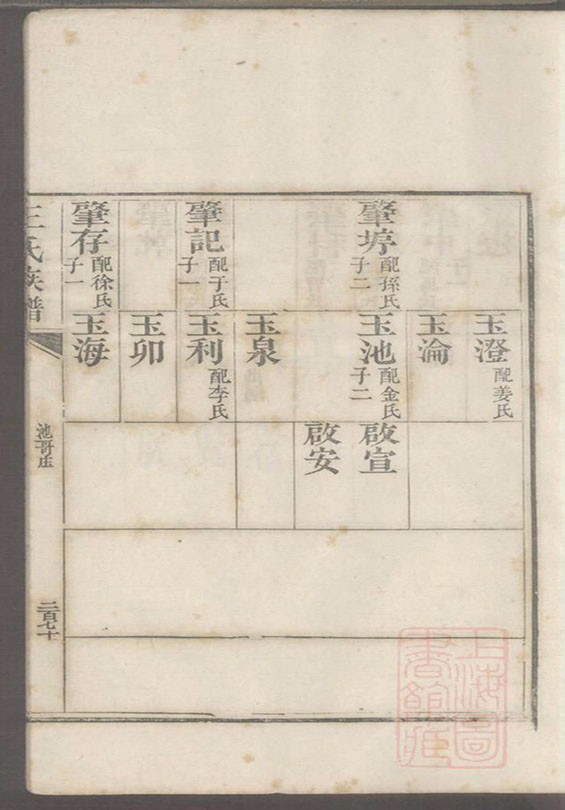 肇垿
配孫氏
子二
肇記
配于氏
子一
肇存
配徐氏
子一
玉澄
配姜氏
玉淪
玉池
配金氏
子二
玉泉
玉利
配李氏
玉卯
玉海
啟宣
啟安
王氏族譜
池哥庄
二百七十
上海圖書館藏